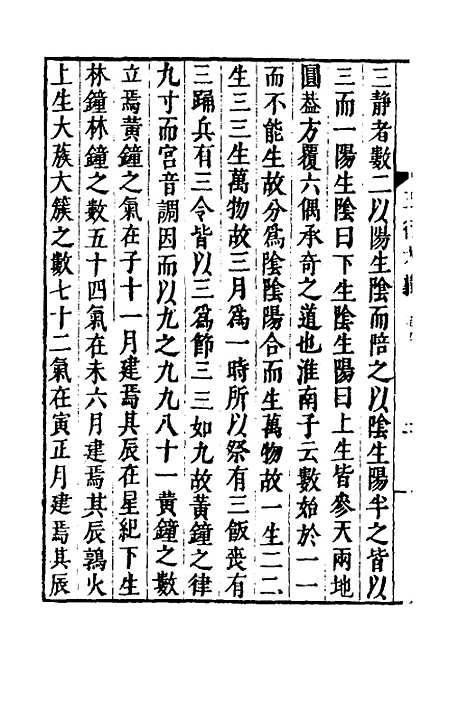 三静者數二以陽生陰而倍之以陰生陽半之皆以
三而一陽生陰曰下生陰生陽曰上生皆參天兩地
圓葢方覆六偶承奇之道也淮南子云數始於一一
而不能生故分為陰陰陽合而生萬物故一生二二
生三三生萬物故三月為一時所以祭有三飯喪有
三踊兵有三令皆以三為節三三如九故黃鐘之律
九寸而宮音調因而以九之九九八十一黃鐘之數
立焉黃鐘之氣在子十一月建焉其辰在星紀下生
林鐘林鐘之數五十四氣在未六月建焉其辰鶉火
上生大族大簇之數七十二氣在寅正月建焉其辰